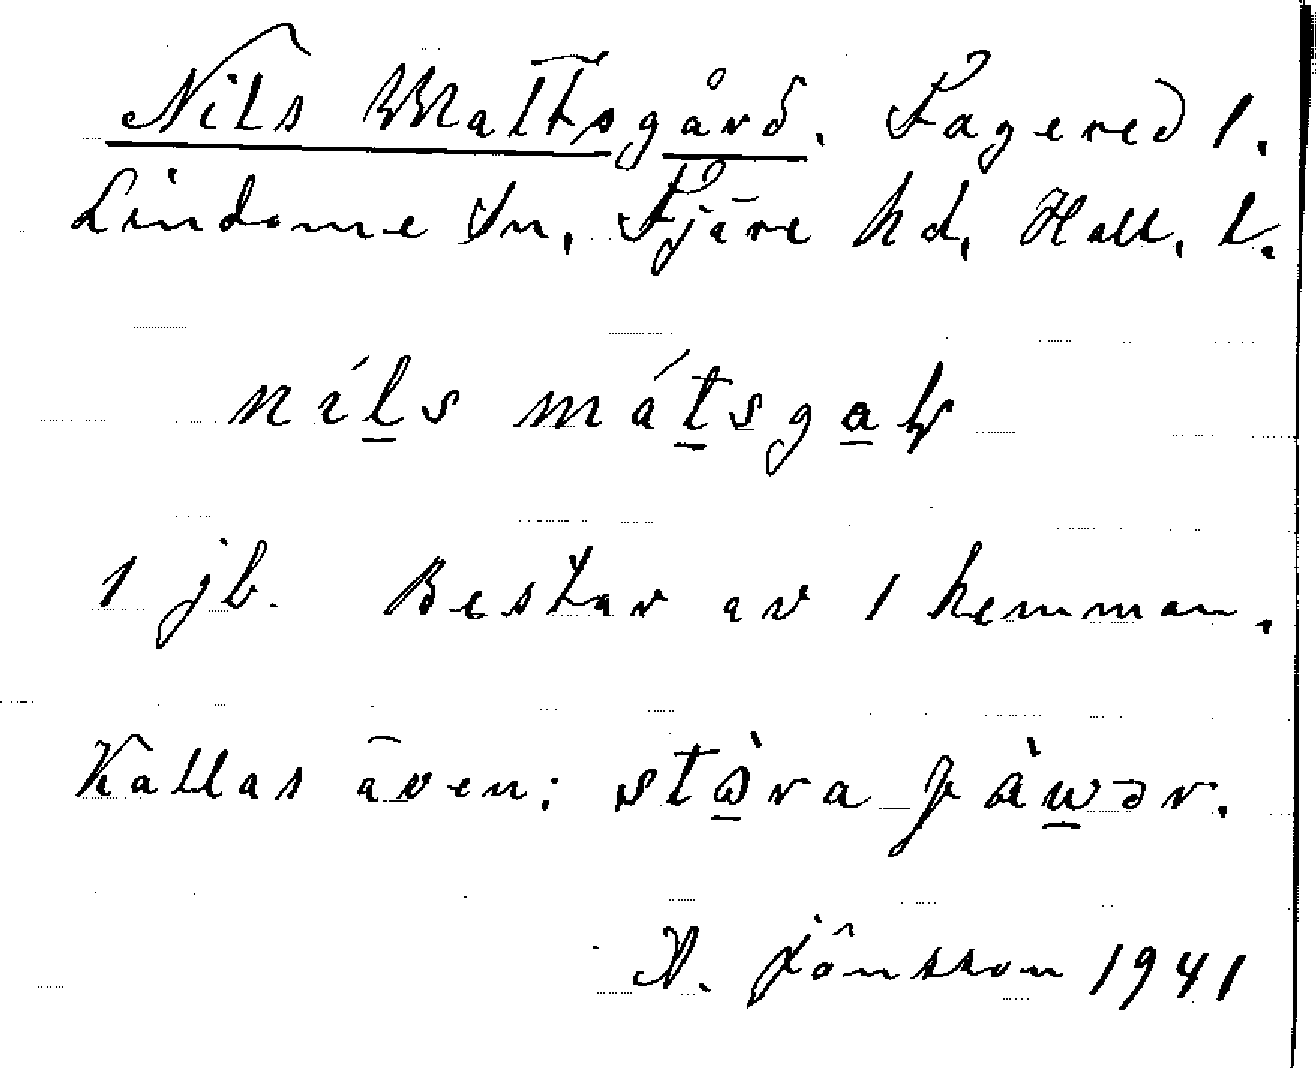 Nils Mattsgård. Fagered 1.
Lindome sn, Fjäre hd, Hall. l.
níls mátsgaḷ
1 jb. Består av 1 hemman.
Kallas även: stòra
A. Jönsson 1941